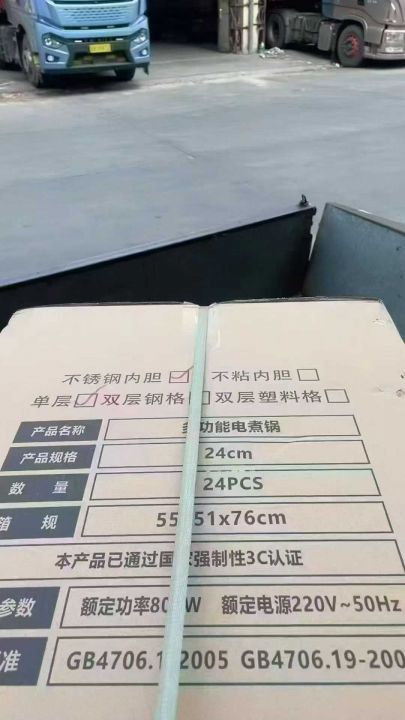 不锈钢内胆☑ 不粘内胆☐
单层☑ 双层钢格☐ 双层塑料格☐
产品名称 功能电煮锅
产品规格 24cm
数量 24PCS
箱规 55 51x76cm
本产品已通过国家强制性3C认证
参数 额定功率80 W 额定电源220V~50Hz
准 GB4706.1 2005 GB4706.19-200